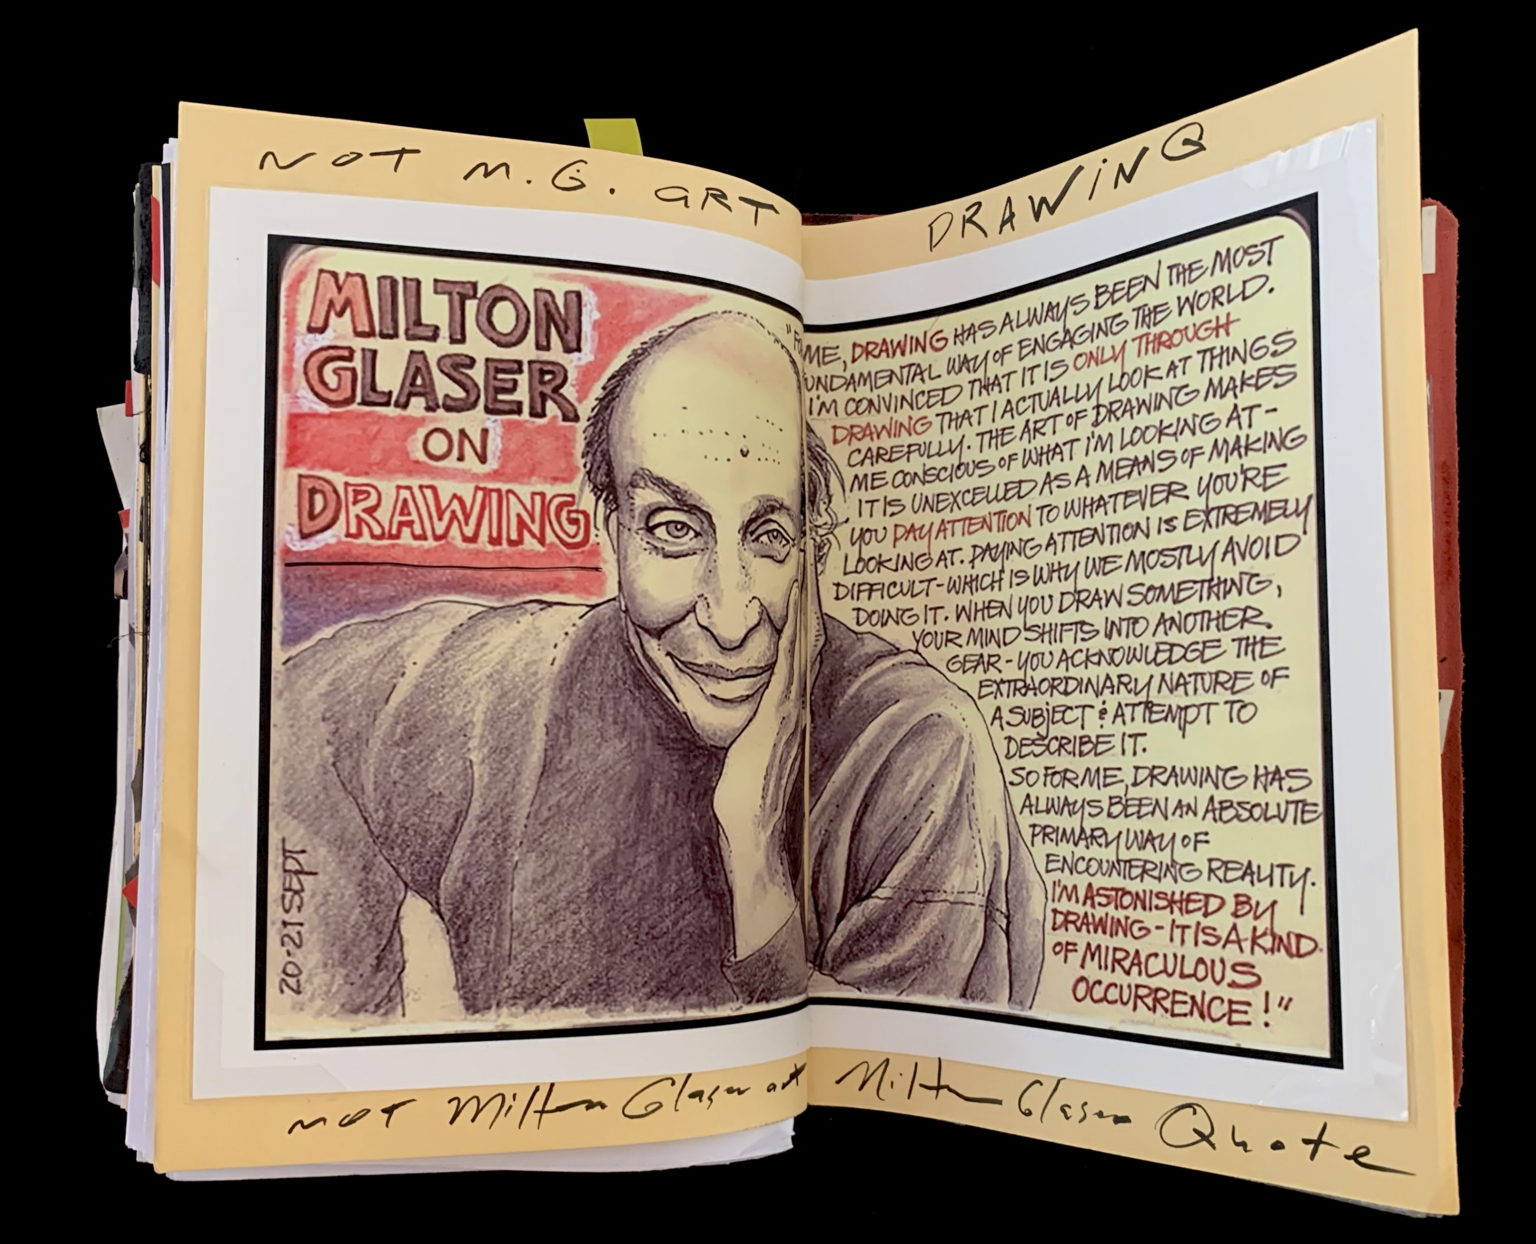 NOT M.G. ART
DRAWING
MILTON
GLASER
ON
DRAWING
20-21 SEPT
ME, DRAWING HAS ALWAYS BEEN THE MOST
UNDAMENTAL WAY OF ENGAGING THE WORLD.
I'M CONVINCED THAT IT IS ONLY THROUGH
DRAWING THAT I ACTUALLY LOOK AT THINGS
CAREFULLY. THE ART OF DRAWING MAKES
ME CONSCIOUS OF WHAT I'M LOOKING AT -
IT IS UNEXCELLED AS A MEANS OF MAKING
YOU PAY ATTENTION TO WHATEVER YOU'RE
LOOKING AT. PAYING ATTENTION IS EXTREMELY
DIFFICULT - WHICH IS WHY WE MOSTLY AVOID
DOING IT. WHEN YOU DRAW SOMETHING,
YOUR MIND SHIFTS INTO ANOTHER
GEAR - YOU ACKNOWLEDGE THE
EXTRAORDINARY NATURE OF
A SUBJECT & ATTEMPT TO
DESCRIBE IT.
SO FOR ME, DRAWING HAS
ALWAYS BEEN AN ABSOLUTE
PRIMARY WAY OF
ENCOUNTERING REALITY.
I'M ASTONISHED BY
DRAWING - IT IS A KIND
OF MIRACULOUS
OCCURRENCE!"
NOT Milton Glaser art
Milton Glaser Quote